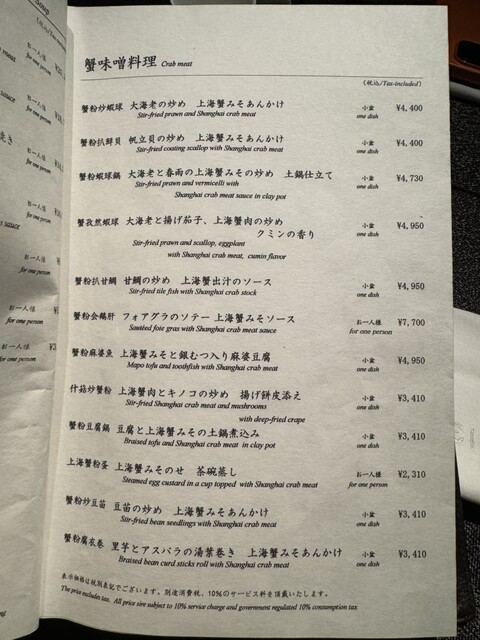 Soup
お一人様
for one person
お一人様
for one person
お一人様
for one person
お一人様
for one person
お一人様
for one person
お一人様
for one person
お一人様
for one person
蟹味噌料理 Crab meat
(税込/Tax-included)
蟹粉炒蝦球 大海老の炒め 上海蟹みそあんかけ 小盆 ¥4,400
Stir-fried prawn and Shanghai crab meat one dish
蟹粉扒鮮貝 帆立貝の炒め 上海蟹みそあんかけ 小盆 ¥4,400
Stir-fried coating scallop with Shanghai crab meat one dish
蟹粉蝦球鍋 大海老と春雨の上海蟹みその炒め 土鍋仕立て 小盆 ¥4,730
Stir-fried prawn and vermicelli with one dish
Shanghai crab meat sauce in clay pot
蟹孜然蝦球 大海老と揚げ茄子、上海蟹肉の炒め 小盆 ¥4,950
クミンの香り one dish
Stir-fried prawn and scallop, eggplant
with Shanghai crab meat, cumin flavor
蟹粉扒甘鯛 甘鯛の炒め 上海蟹出汁のソース 小盆 ¥4,950
Stir-fried tile fish with Shanghai crab stock one dish
蟹粉会鵝肝 フォアグラのソテー 上海蟹みそソース お一人様 ¥7,700
Sautéed foie gras with Shanghai crab meat sauce for one person
蟹粉麻婆魚 上海蟹みそと銀むつ入り麻婆豆腐 小盆 ¥4,950
Mapo tofu and toothfish with Shanghai crab meat one dish
什菇炒蟹粉 上海蟹肉とキノコの炒め 揚げ餅皮添え 小盆 ¥3,410
Stir-fried Shanghai crab meat and mushrooms one dish
with deep-fried crape
蟹粉豆腐鍋 豆腐と上海蟹みその土鍋煮込み 小盆 ¥3,410
Braised tofu and Shanghai crab meat in clay pot one dish
上海蟹粉蛋 上海蟹みそのせ 茶碗蒸し お一人様 ¥2,310
Steamed egg custard in a cup topped with Shanghai crab meat for one person
蟹粉炒豆苗 豆苗の炒め 上海蟹みそあんかけ 小盆 ¥3,410
Stir-fried bean seedlings with Shanghai crab meat one dish
蟹粉腐衣巻 里芋とアスパラの湯葉巻き 上海蟹みそあんかけ 小盆 ¥3,410
Braised bean curd sticks roll with Shanghai crab meat one dish
表示価格は税別表記でございます。別途消費税、10%のサービス料を頂戴いたします。
The price excludes tax. All price sire subject to 10% service charge and government regulated 10% consumption tax